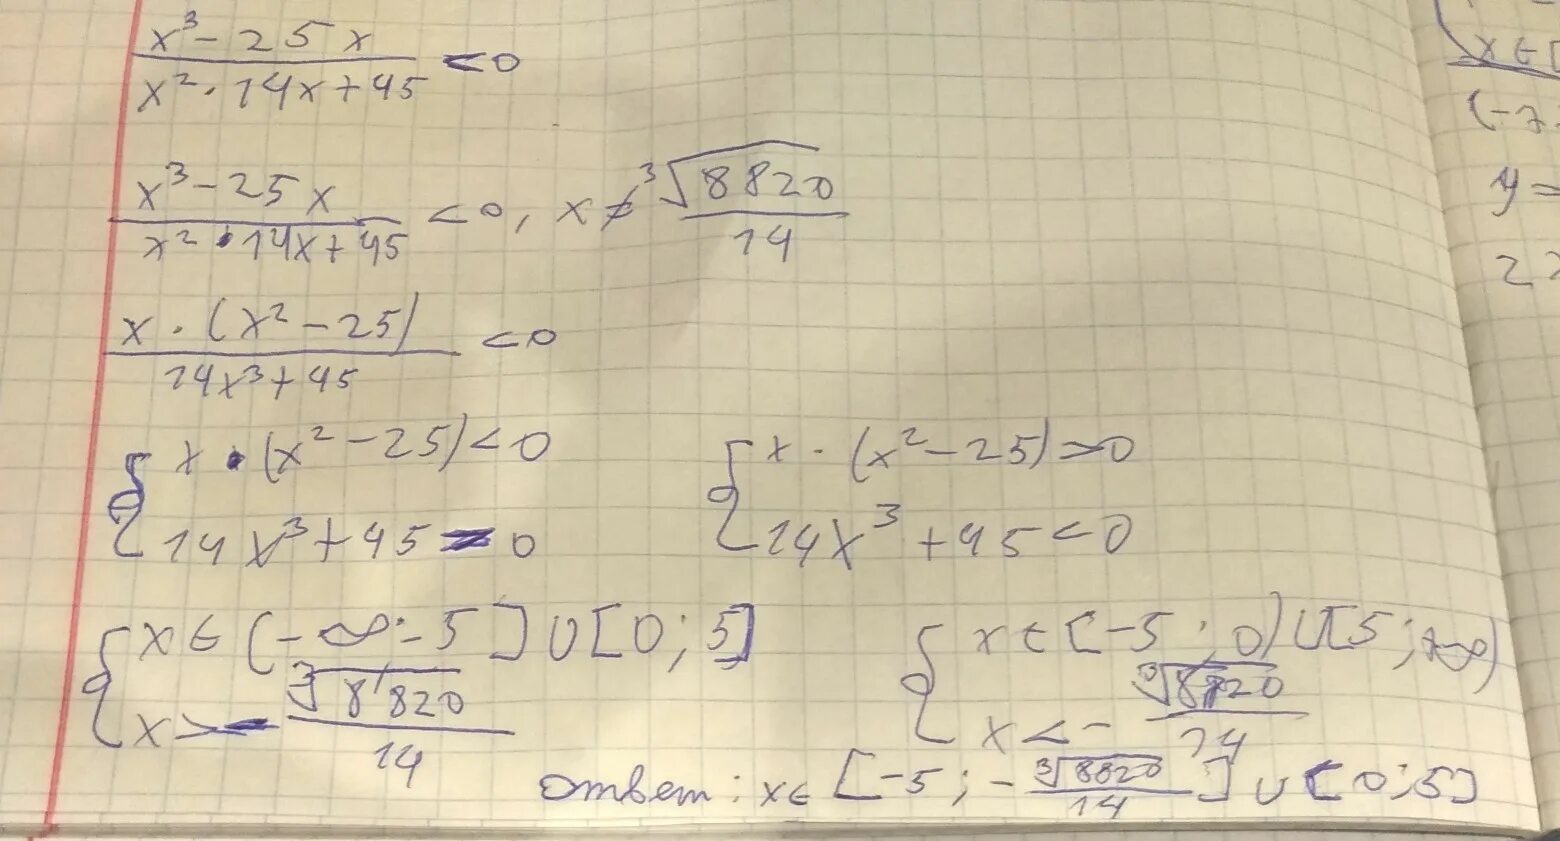 x³ - 25x / x² · 14x + 45 < 0
x³ - 25x / x² · 14x + 45 < 0, x ≠ ³√8820 / 14
x · (x² - 25) / 14x³ + 45 < 0
{ x · (x² - 25) < 0 { x · (x² - 25) > 0
14x³ + 45 > 0 14x³ + 45 < 0
{ x ∈ (-∞; -5] ∪ [0; 5] { x ∈ [-5; 0) ∪ [5; +∞)
x > - ³√8820 / 14 x < - ³√8820 / 14
ответ: x ∈ [-5; - ³√8820 / 14] ∪ [0; 5]
x ∈ [
(-7
y =
2